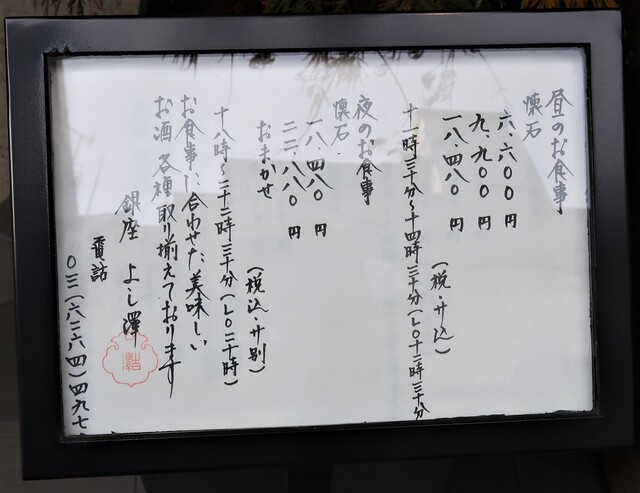 昼のお食事
懐石
六、六〇〇 円
九、九〇〇 円
一八、四八〇 円
(税・サ込)
十一時三十分~十四時三十分(L〇十三時三十分
夜のお食事
懐石
一八、四八〇 円
二二、八八〇 円
おまかせ
(税込・サ別)
十八時~二十二時三十分(L〇二十時)
お食事に合わせた美味しい
お酒各種取り揃えております
銀座 よし澤
電話
〇三(六二六四)四九七